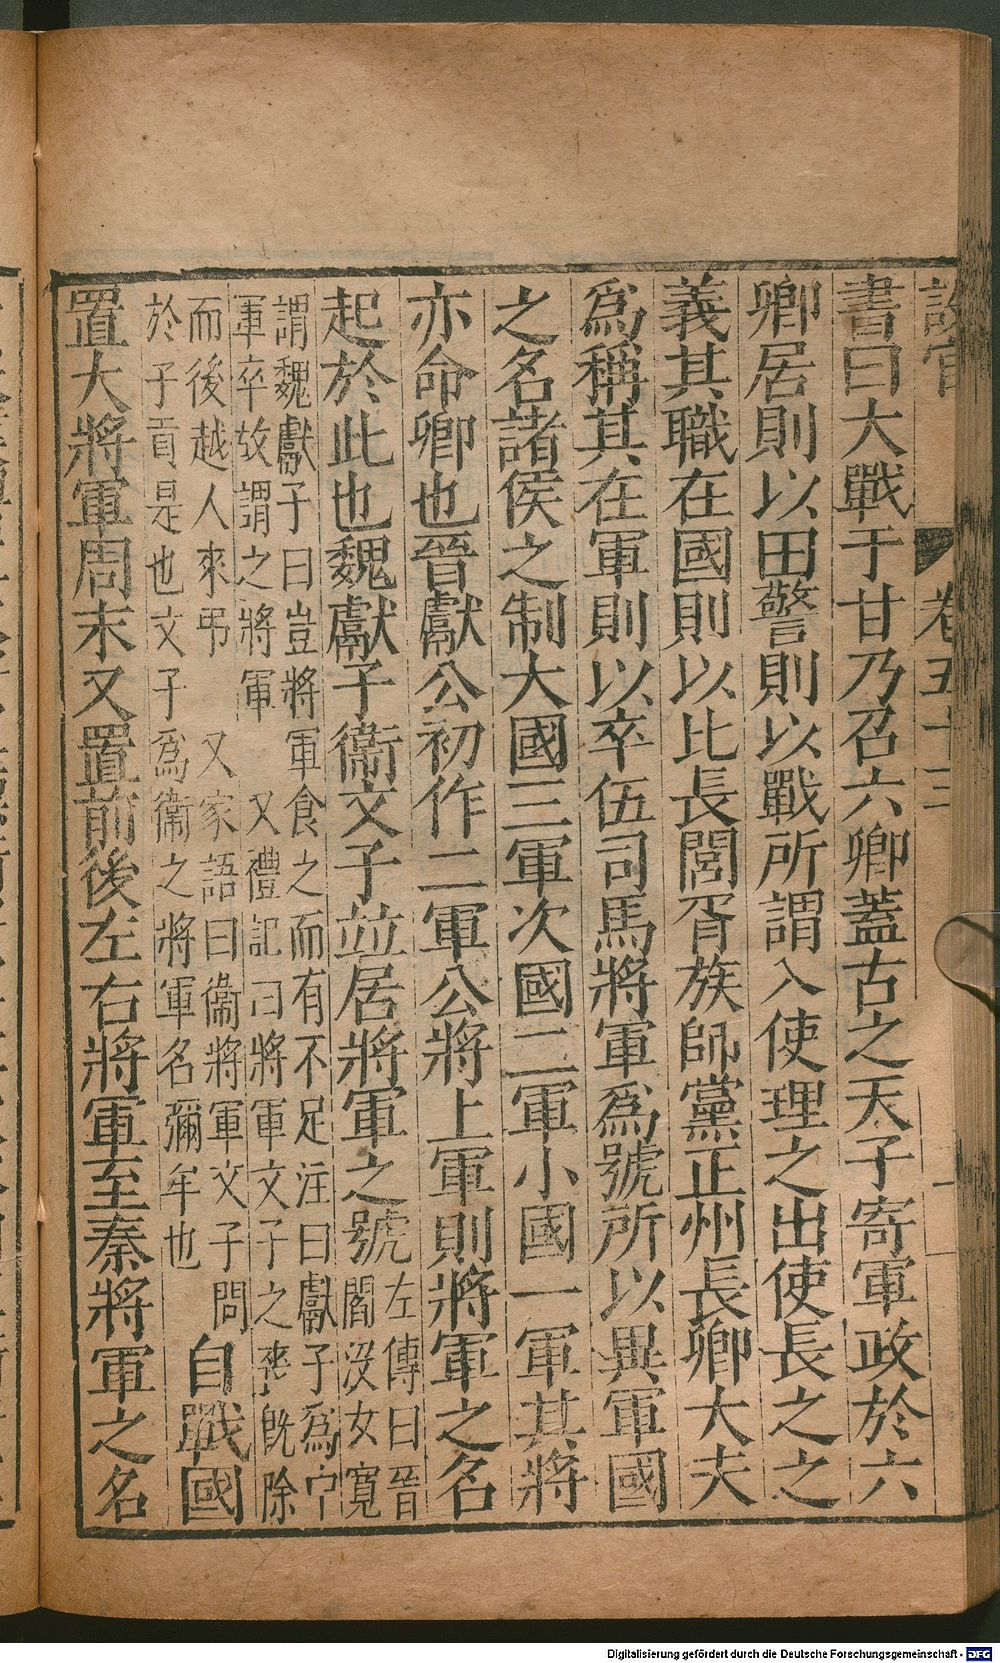 設官 卷五十三 一
書曰大戰于甘乃召六卿蓋古之天子寄軍政於六
卿居則以田警則以戰所謂入使理之出使長之之
義其職在國則以比長閭胥族師黨正州長卿大夫
爲稱其在軍則以卒伍司馬將軍爲號所以異軍國
之名諸侯之制大國三軍次國二軍小國一軍其將
亦命卿也晉獻公初作二軍公將上軍則將軍之名
起於此也魏獻子衞文子竝居將軍之號
左傳曰晉
閻没女寛
謂魏獻子曰豈將軍食之而有不足注曰獻子爲中
軍卒故謂之將軍 又禮記曰將軍文子之喪旣除
而後越人來弔 又家語曰衞將軍文子問
於子貢是也文子爲衞之將軍名彌牟也
自戰國
置大將軍周末又置前後左右將軍至秦將軍之名
Digitalisierung gefördert durch die Deutsche Forschungsgemeinschaft - DFG